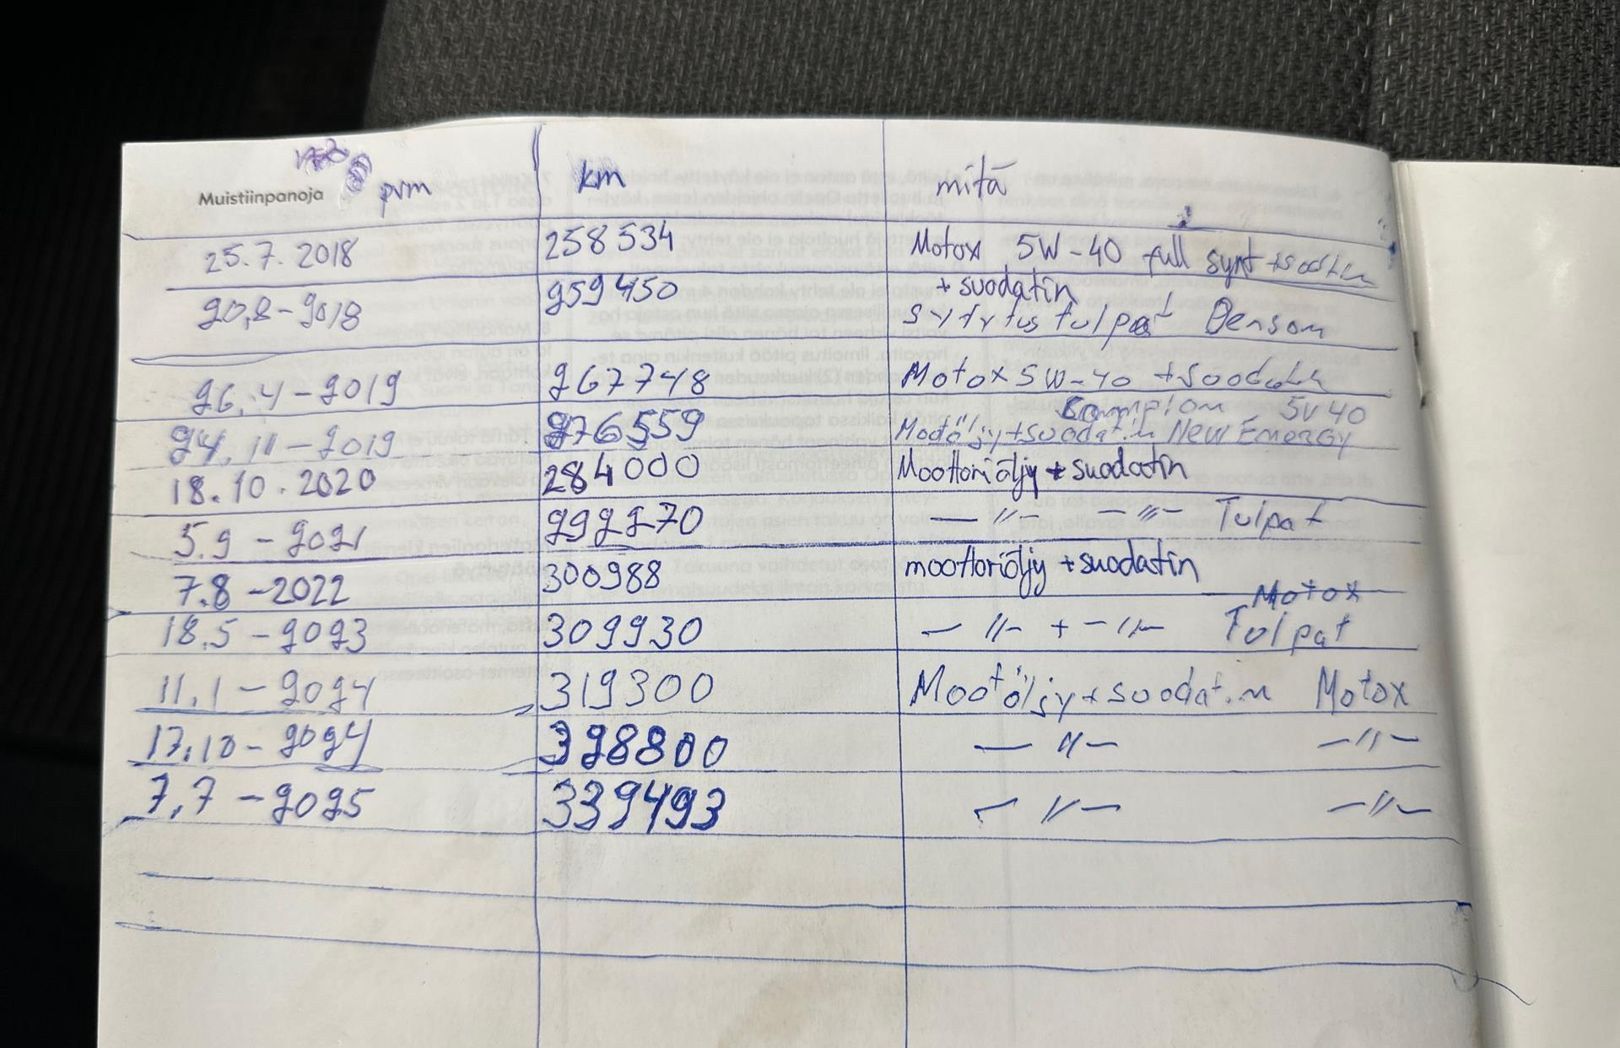 Muistiinpanoja pvm km mitä
25.7.2018 258534 Motox 5W-40 full synt +suodatin
20,8-2018 259450 + suodatin
Sytytus tulpat Denson
26.4-2019 267748 Motox 5W-40 +Suodatin
Campion 5W40
24.11-2019 276559 Motöljy+suodatin New ENERGY
18.10.2020 284000 Moottoriöljy + suodatin
5.9-2021 292270 -"- -"- Tulpat
7.8-2022 300988 moottoriöljy + suodatin
Motox
18.5-2023 309930 -"- + -"- Tulpat
11.1-2024 319300 Mootöljy+suodatin Motox
17.10-2024 328800 -"- -"-
7.7-2025 339493 -"- -"-